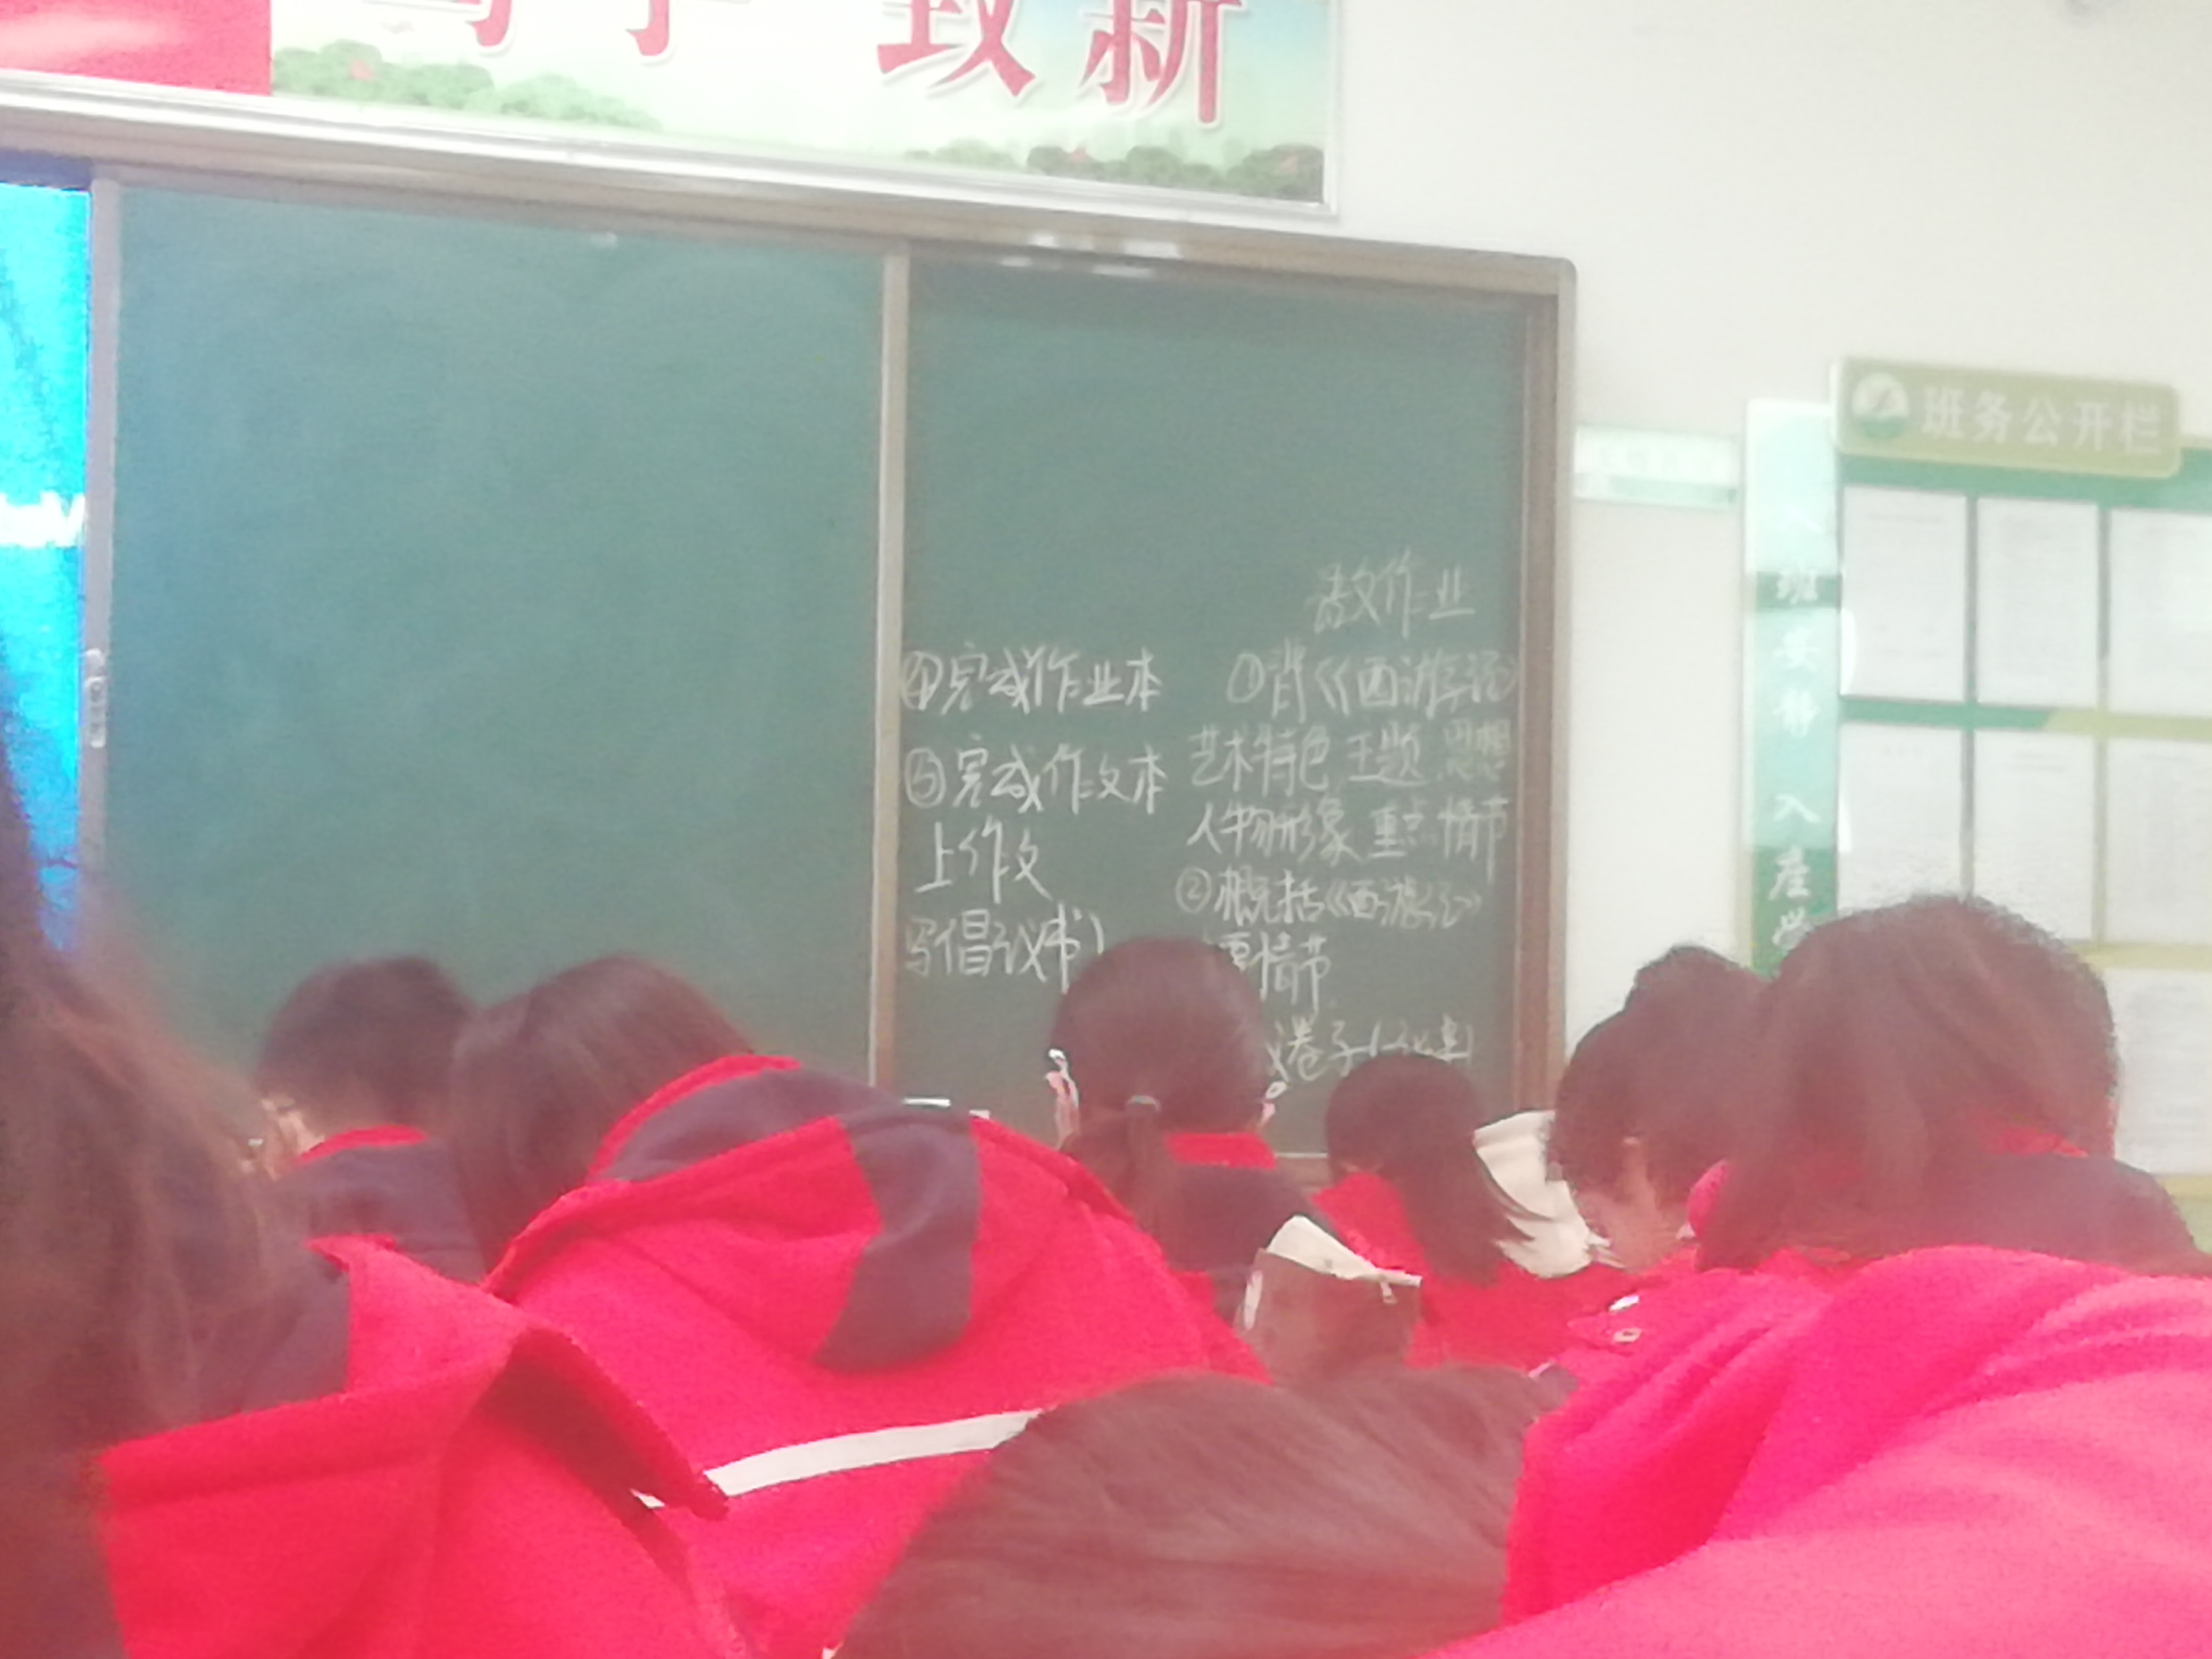 致新
班务公开栏
入班安静 入座学
作业
①背《西游记》
艺术特色 主题 思想
人物形象 重点 情节
②概括《西游记》
要情节
卷子
④完成作业本
⑤完成作文本
上作文
写倡议书)